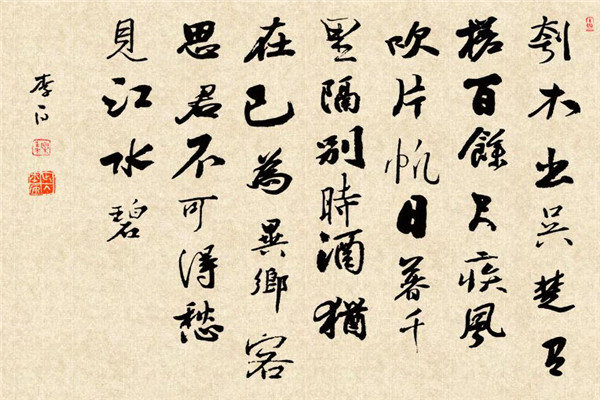 刳木出吳楚危
槎百餘尺疾風
吹片帆日暮千
里隔別時酒猶
在已為異鄉客
思君不可得愁
見江水碧
李白